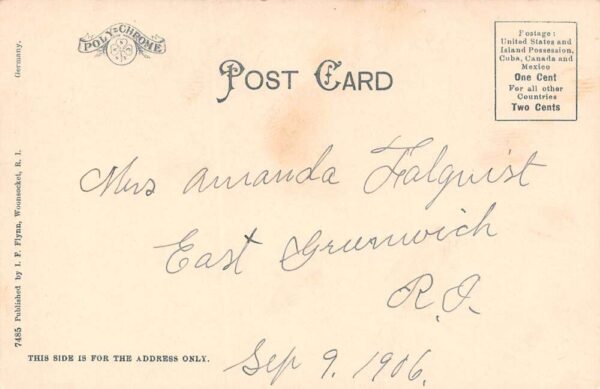 POLY-CHROME
POST CARD
Postage:
United States and
Island Possession,
Cuba, Canada and
Mexico
One Cent
For all other
Countries
Two Cents
Mrs Amanda Falquist
East Greenwich
R.I.
Sep 9. 1906.
THIS SIDE IS FOR THE ADDRESS ONLY.
7485 Published by I. F. Flynn, Woonsocket, R. I.
Germany.